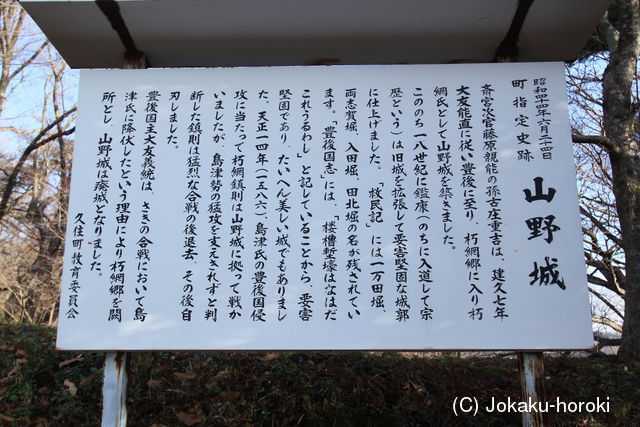 昭和四十四年六月二十四日
町指定史跡
山野城
斎宮次官藤原親能の孫古庄重吉は、建久七年
大友能直に従い豊後に至り、朽網郷に入り朽
網氏として山野城を築きました。
このち一八世紀に鑑康(のちに入道して宗
歴という)は旧城を拡張して要害堅固な城郭
に仕上げました。「故民記」には一万田堀、
両志賀堀、入田堀、田北堀の名が残されてい
ます。「豊後国志」には、「楼櫓塹壕はなはだ
これうるわし」と記していることから、要害
堅固であり、たいへん美しい城でもありまし
た。天正一四年(一五八六)、島津氏の豊後国侵
攻に当たって朽網鎮則は山野城に拠って戦か
いましたが、島津勢の猛攻を支えきれずと判
断した鎮則は猛烈な合戦の後退去、その後自
刃しました。
豊後国主大友義統は、さきの合戦において島
津氏に降伏したという理由により朽網郷を闕
所とし、山野城は廃城となりました。
久住町教育委員会
(C) Jokaku-horoki